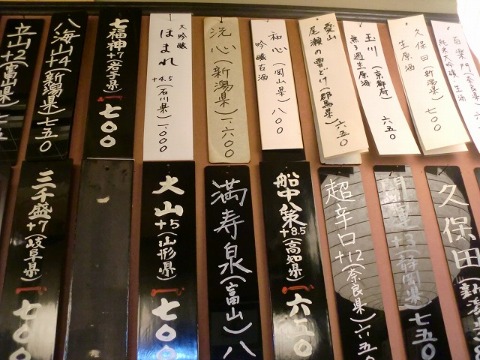 久保田(新潟県)七〇〇
生原酒
玉川(京都府)六五〇
無ろ過生原酒
尾瀬の雪どけ(群馬県)六五〇
初心(岡山県)八〇〇
吟醸古酒
洗心(新潟県)一、六〇〇
大吟醸
ほまれ+4.5(石川県)一、〇〇〇
七福神+7(岩手県)七〇〇
八海山+4(新潟県)七五〇
立山+2(富山県)
久保田(新潟
+3(静岡県)七五〇
超辛口+12(奈良県)六五
船中八策+8.5(高知県)六五〇
満寿泉(富山)八
大山+5(山形県)七〇〇
三千盛+7(岐阜県)七〇〇